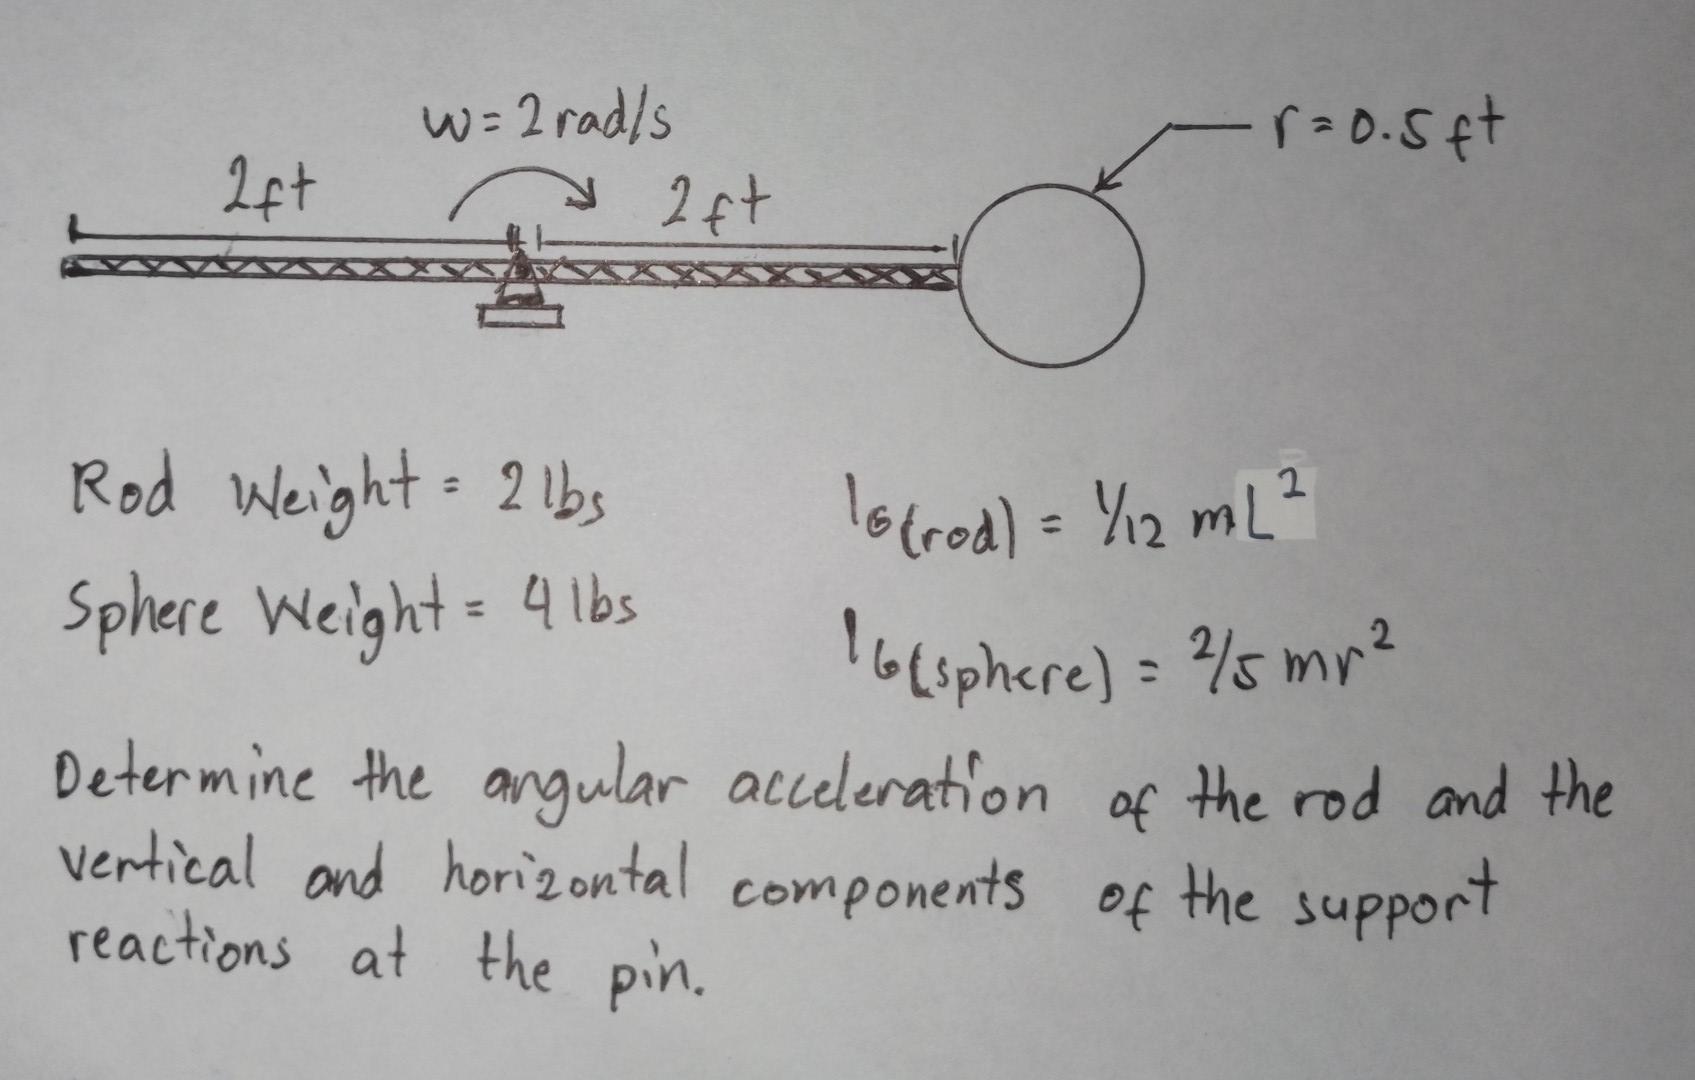 w = 2 rad/s
r = 0.5 ft
2ft
2 ft
Rod Weight = 2 lbs
IG(rod) = 1/12 mL²
Sphere Weight = 4 lbs
IG(sphere) = 2/5 mr²
Determine the angular acceleration of the rod and the
vertical and horizontal components of the support
reactions at the pin.